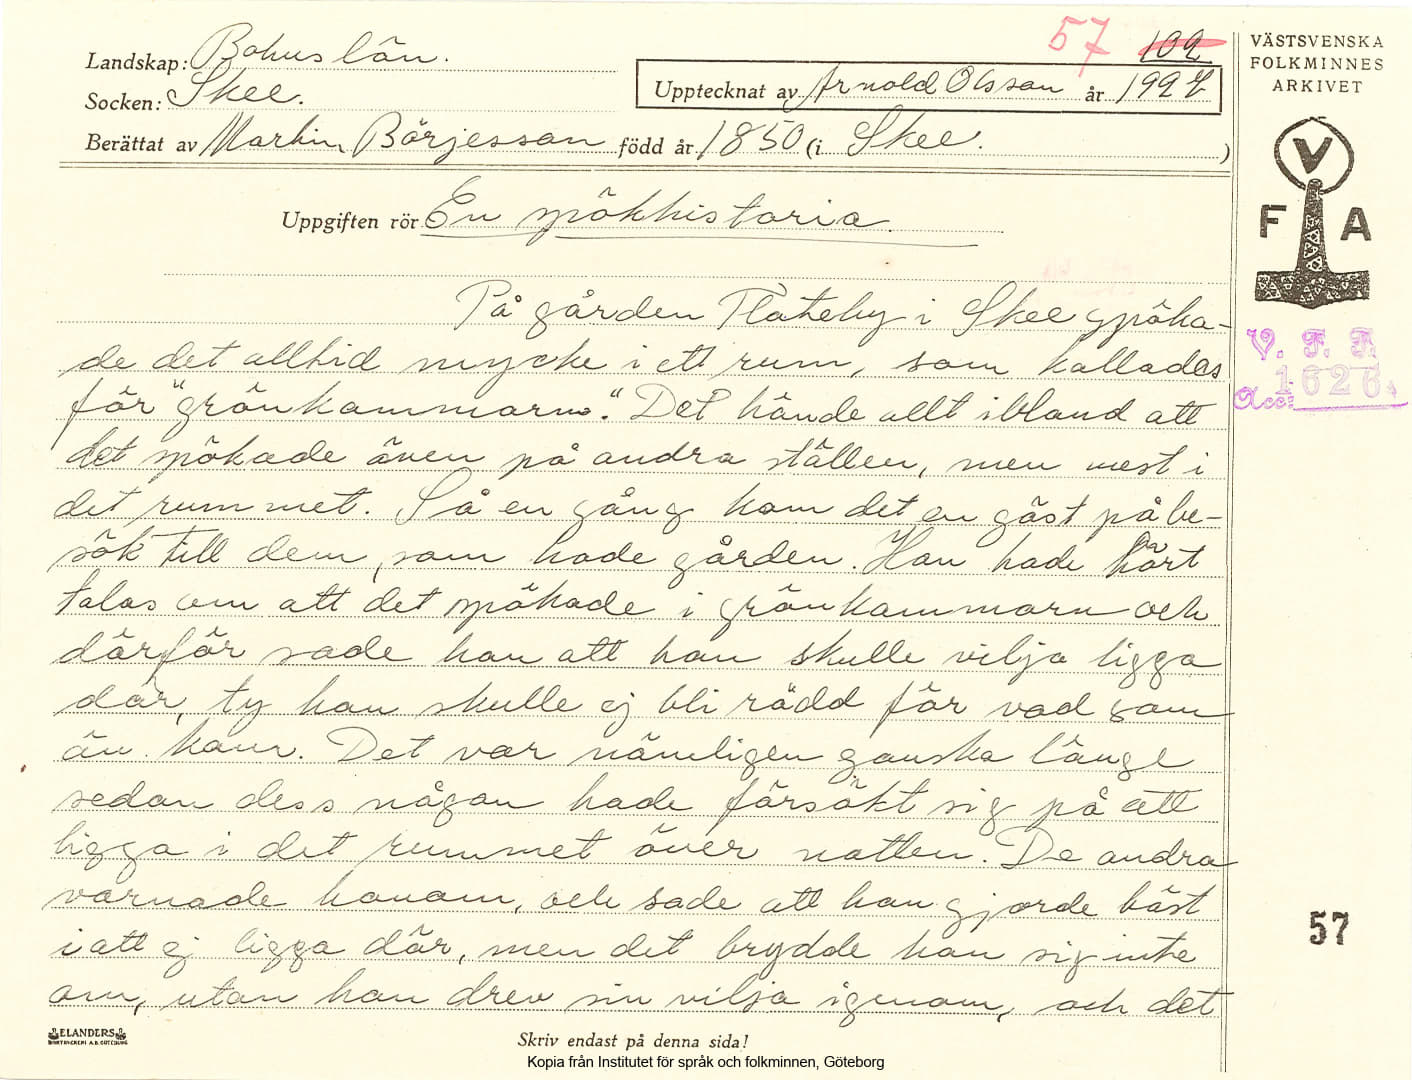 57 102
VÄSTSVENSKA
FOLKMINNES
ARKIVET
Landskap: Bohuslän.
Socken: Skee.
Upptecknat av Arnold Olsson år 1927
Berättat av Martin Börjesson född år 1850 (i Skee. )
V
F A
Uppgiften rör En spökhistoria.
På gården Flateby i Skee spöka-
de det alltid mycke i ett rum, som kallades
för "grönkammarn." Det hände allt ibland att
det spökade även på andra ställen, men mest i
det rummet. Så en gång kom det en gäst på be-
sök till dem, som hade gården. Han hade hört
talas om att det spökade i grönkammarn och
därför sade han att han skulle vilja ligga
där, ty han skulle ej bli rädd för vad som
än kom. Det var nämligen ganska länge
sedan dess någon hade försökt sig på att
ligga i det rummet över natten. De andra
varnade honom, och sade att han gjorde bäst
i att ej ligga där, men det brydde han sig inte
om, utan han drev sin vilja igenom, och det
V. F. F.
Acc: 1626.
57
ELANDERS
BOKTRYCKERI A.B. GÖTEBORG
Skriv endast på denna sida!
Kopia från Institutet för språk och folkminnen, Göteborg